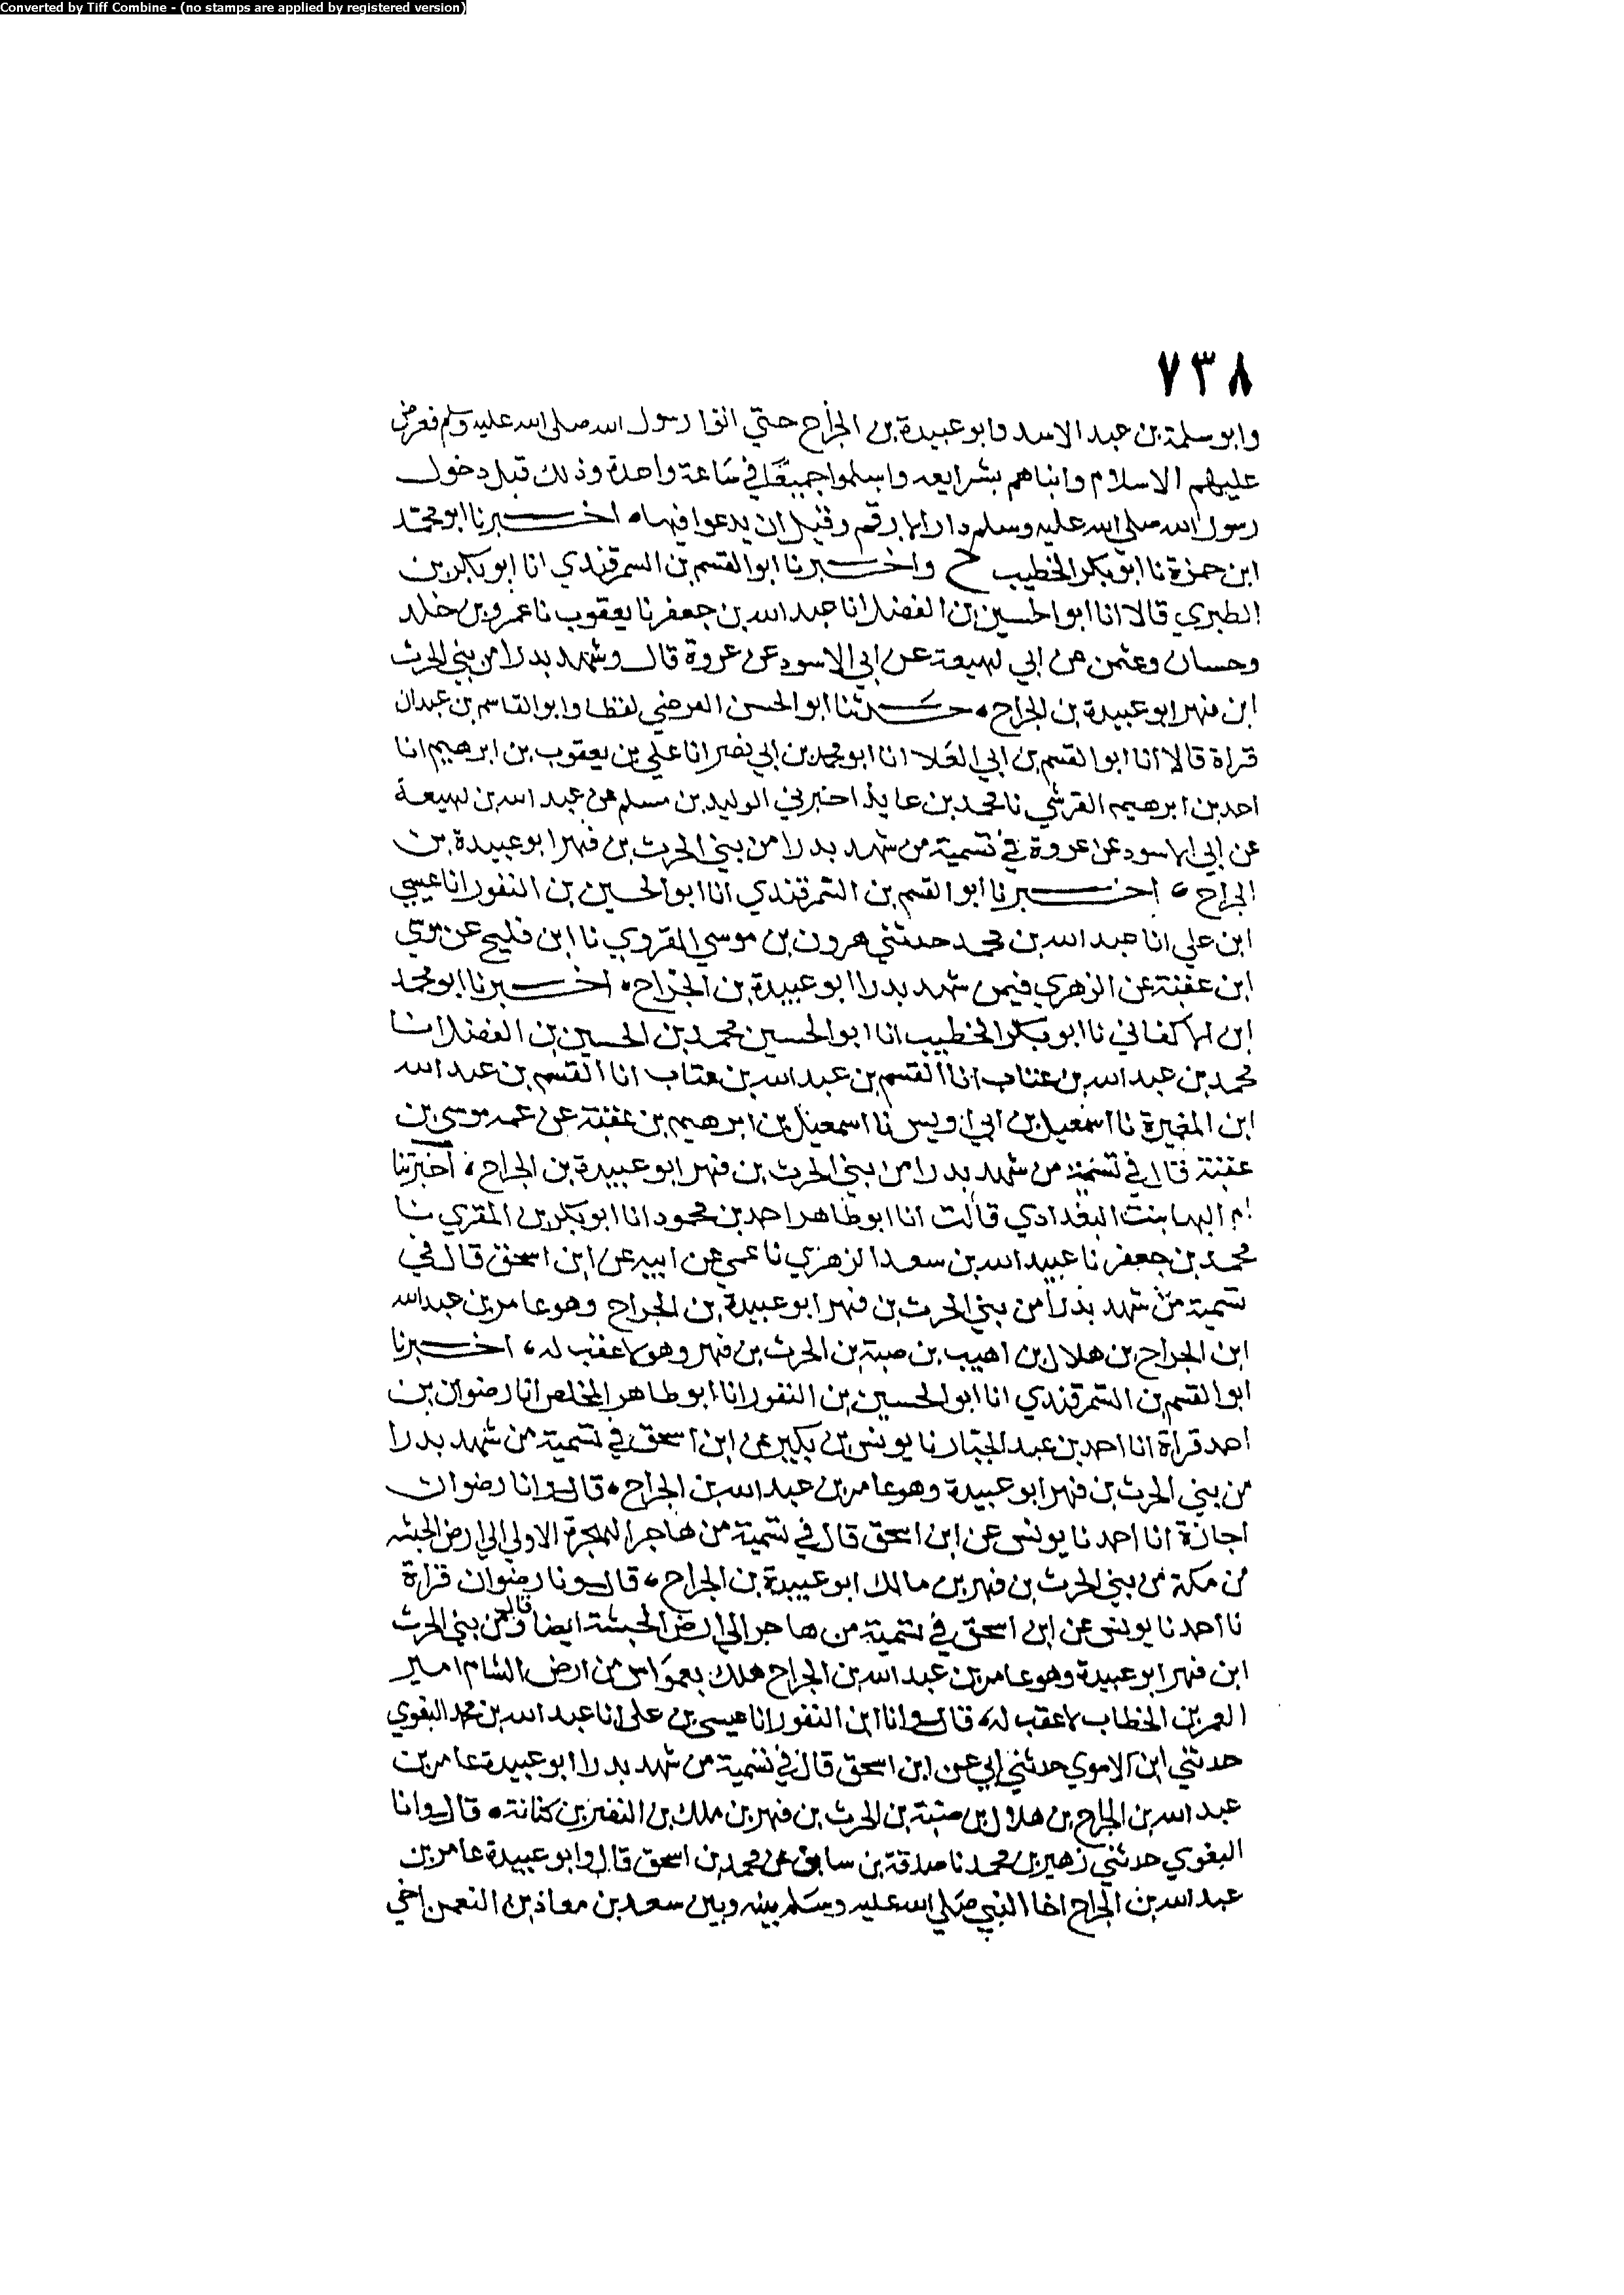 Converted by Tiff Combine - (no stamps are applied by registered version)
٧٣٨
وابو سلمة بن عبد الاسد وابو عبيدة بن الجراح حتي اتوا رسول الله صلى الله عليه وسلم فعرض
عليهم الاسلام وانباهم بشرايعه واسلموا جميعًا في ساعة واحدة وذلك قبل دخول
رسول الله صلى الله عليه وسلم دار الارقم وقبل ان يدعوا فيها، اخـــبرنا ابو محمد
ابن حمزة نا ابو بكر الخطيب ح واخـــبرنا ابو القسم بن السمرقندي انا ابو بكر بن
الطبري قالا انا ابو الحسين بن الفضل انا عبد الله بن جعفر نا يعقوب نا عمرو بن خلد
وحسان وعثمن عن ابي لهيعة عن ابي الاسود عن عروة قال وشهد بدرا من بني الحرث
ابن فهر ابو عبيدة بن الجراح، حـــدثنا ابو الحسن الفرضي لفظا وابو القاسم بن عبدان
قراة قالا انا ابو القسم بن ابي العلا انا ابو محمد بن ابي نصر انا علي بن يعقوب بن ابرهيم انا
احمد بن ابرهيم القرشي نا محمد بن عايذ اخبرني الوليد بن مسلم عن عبد الله بن لهيعة
عن ابي الاسود عن عروة في تسمية من شهد بدرا من بني الحرث بن فهر ابو عبيدة بن
الجراح ، اخـــبرنا ابو القسم بن السمرقندي انا ابو الحسين بن النقور انا عيسي
ابن علي انا عبد الله بن محمد حدثني هرون بن موسي الفروي نا ابن فليح عن موسي
ابن عقبة عن الزهري فيمن شهد بدرا ابو عبيدة بن الجراح، اخـــبرنا ابو محمد
ابن الاكفاني نا ابو بكر الخطيب انا ابو الحسين محمد بن الحسين بن الفضل انا
محمد بن عبد الله بن عتاب انا القسم بن عبد الله بن عتاب انا القسم بن عبد الله
ابن المغيرة نا اسمعيل بن ابي اويس نا اسمعيل بن ابرهيم بن عقبة عن عمه موسي بن
عقبة قال في تسمية من شهد بدرا من بني الحرث بن فهر ابو عبيدة بن الجراح، اخبرتنا
ام البها بنت البغدادي قالت انا ابو طاهر احمد بن محمود انا ابو بكر بن المقري نا
محمد بن جعفر نا عبيد الله بن سعد الزهري نا عمي عن ابيه عن ابن اسحق قال في
تسمية من شهد بدرا من بني الحرث بن فهر ابو عبيدة بن الجراح وهو عامر بن عبد الله
ابن الجراح بن هلال بن اهيب بن ضبة بن الحرث بن فهر وهو لا عقب له، اخـــبرنا
ابو القسم بن السمرقندي انا ابو الحسين بن النقور انا ابو طاهر المخلص انا رضوان بن
احمد قراة انا احمد بن عبد الجبار نا يونس بن بكير عن ابن اسحق في تسمية من شهد بدرا
من بني الحرث بن فهر ابو عبيدة وهو عامر بن عبد الله بن الجراح، قال وانا رضوان
اجازة انا احمد نا يونس عن ابن اسحق قال في تسمية من هاجر الهجرة الاولي الي ارض الحبشه
من مكة من بني الحرث بن فهر بن مالك ابو عبيدة بن الجراح، قال ونا رضوان قراة
نا احمد نا يونس عن ابن اسحق في تسمية من هاجر الي ارض الحبشة ايضا قال ومن بني الحرث
ابن فهر ابو عبيدة وهو عامر بن عبد الله بن الجراح هلك بعمواس من ارض الشام امير
العمر بن الخطاب لا عقب له، قال وانا ابن النقور انا عيسى بن على انا عبد الله بن محمد البغوي
حدثني ابن الاموي حدثني ابي عن ابن اسحق قال في تسمية من شهد بدرا ابو عبيدة عامر بن
عبد الله بن الجراح بن هلال بن ضبة بن الحرث بن فهر بن ملك بن النضر بن كنانة، قال وانا
البغوي حدثني زهير بن محمد نا صدقة بن سابق عن محمد بن اسحق قال وابو عبيدة عامر بن
عبد الله بن الجراح اخا النبي صلي الله عليه وسلم بينه وبين سعد بن معاذ بن النعمن اخي